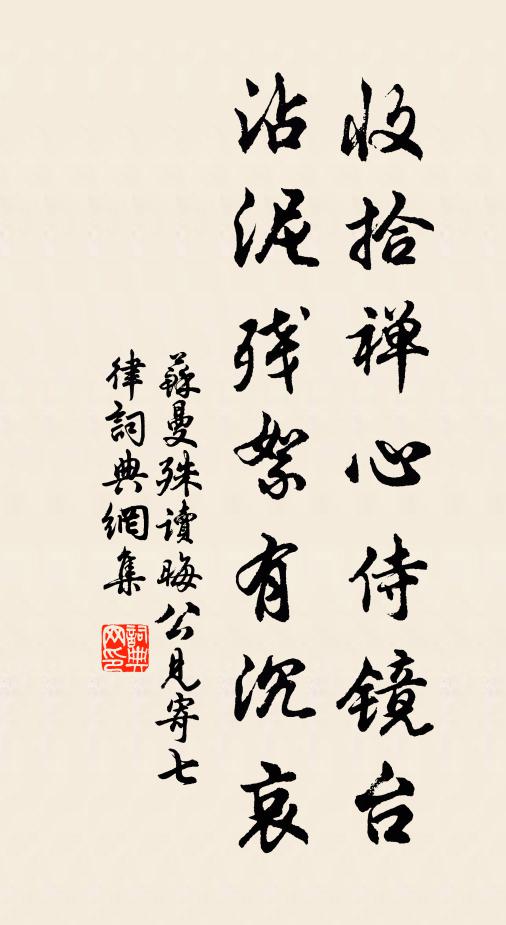 收拾禅心侍镜台
沾泥残絮有沉哀
蘇曼殊读晦公见寄七
律詞典網集
詞典
网印